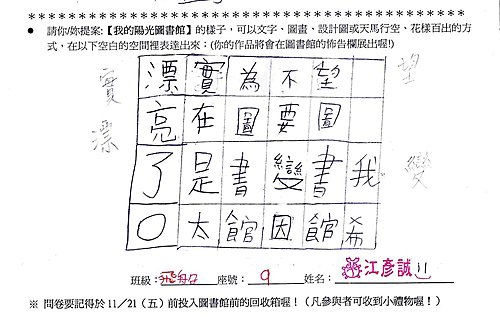 ● 請你/妳提案:【我的陽光圖書館】的樣子，可以文字、圖畫、設計圖或天馬行空、花樣百出的方
式，在以下空白的空間裡表達出來：(你的作品將會在圖書館的佈告欄展出喔!)
望
變
我希
望圖書館
不要變因
為圖書館
實在是太
漂亮了。
實
漂
班級：飛船 座號：9 姓名：江彥誠
※ 問卷要記得於 11／21（五）前投入圖書館前的回收箱喔！（凡參與者可收到小禮物喔！）